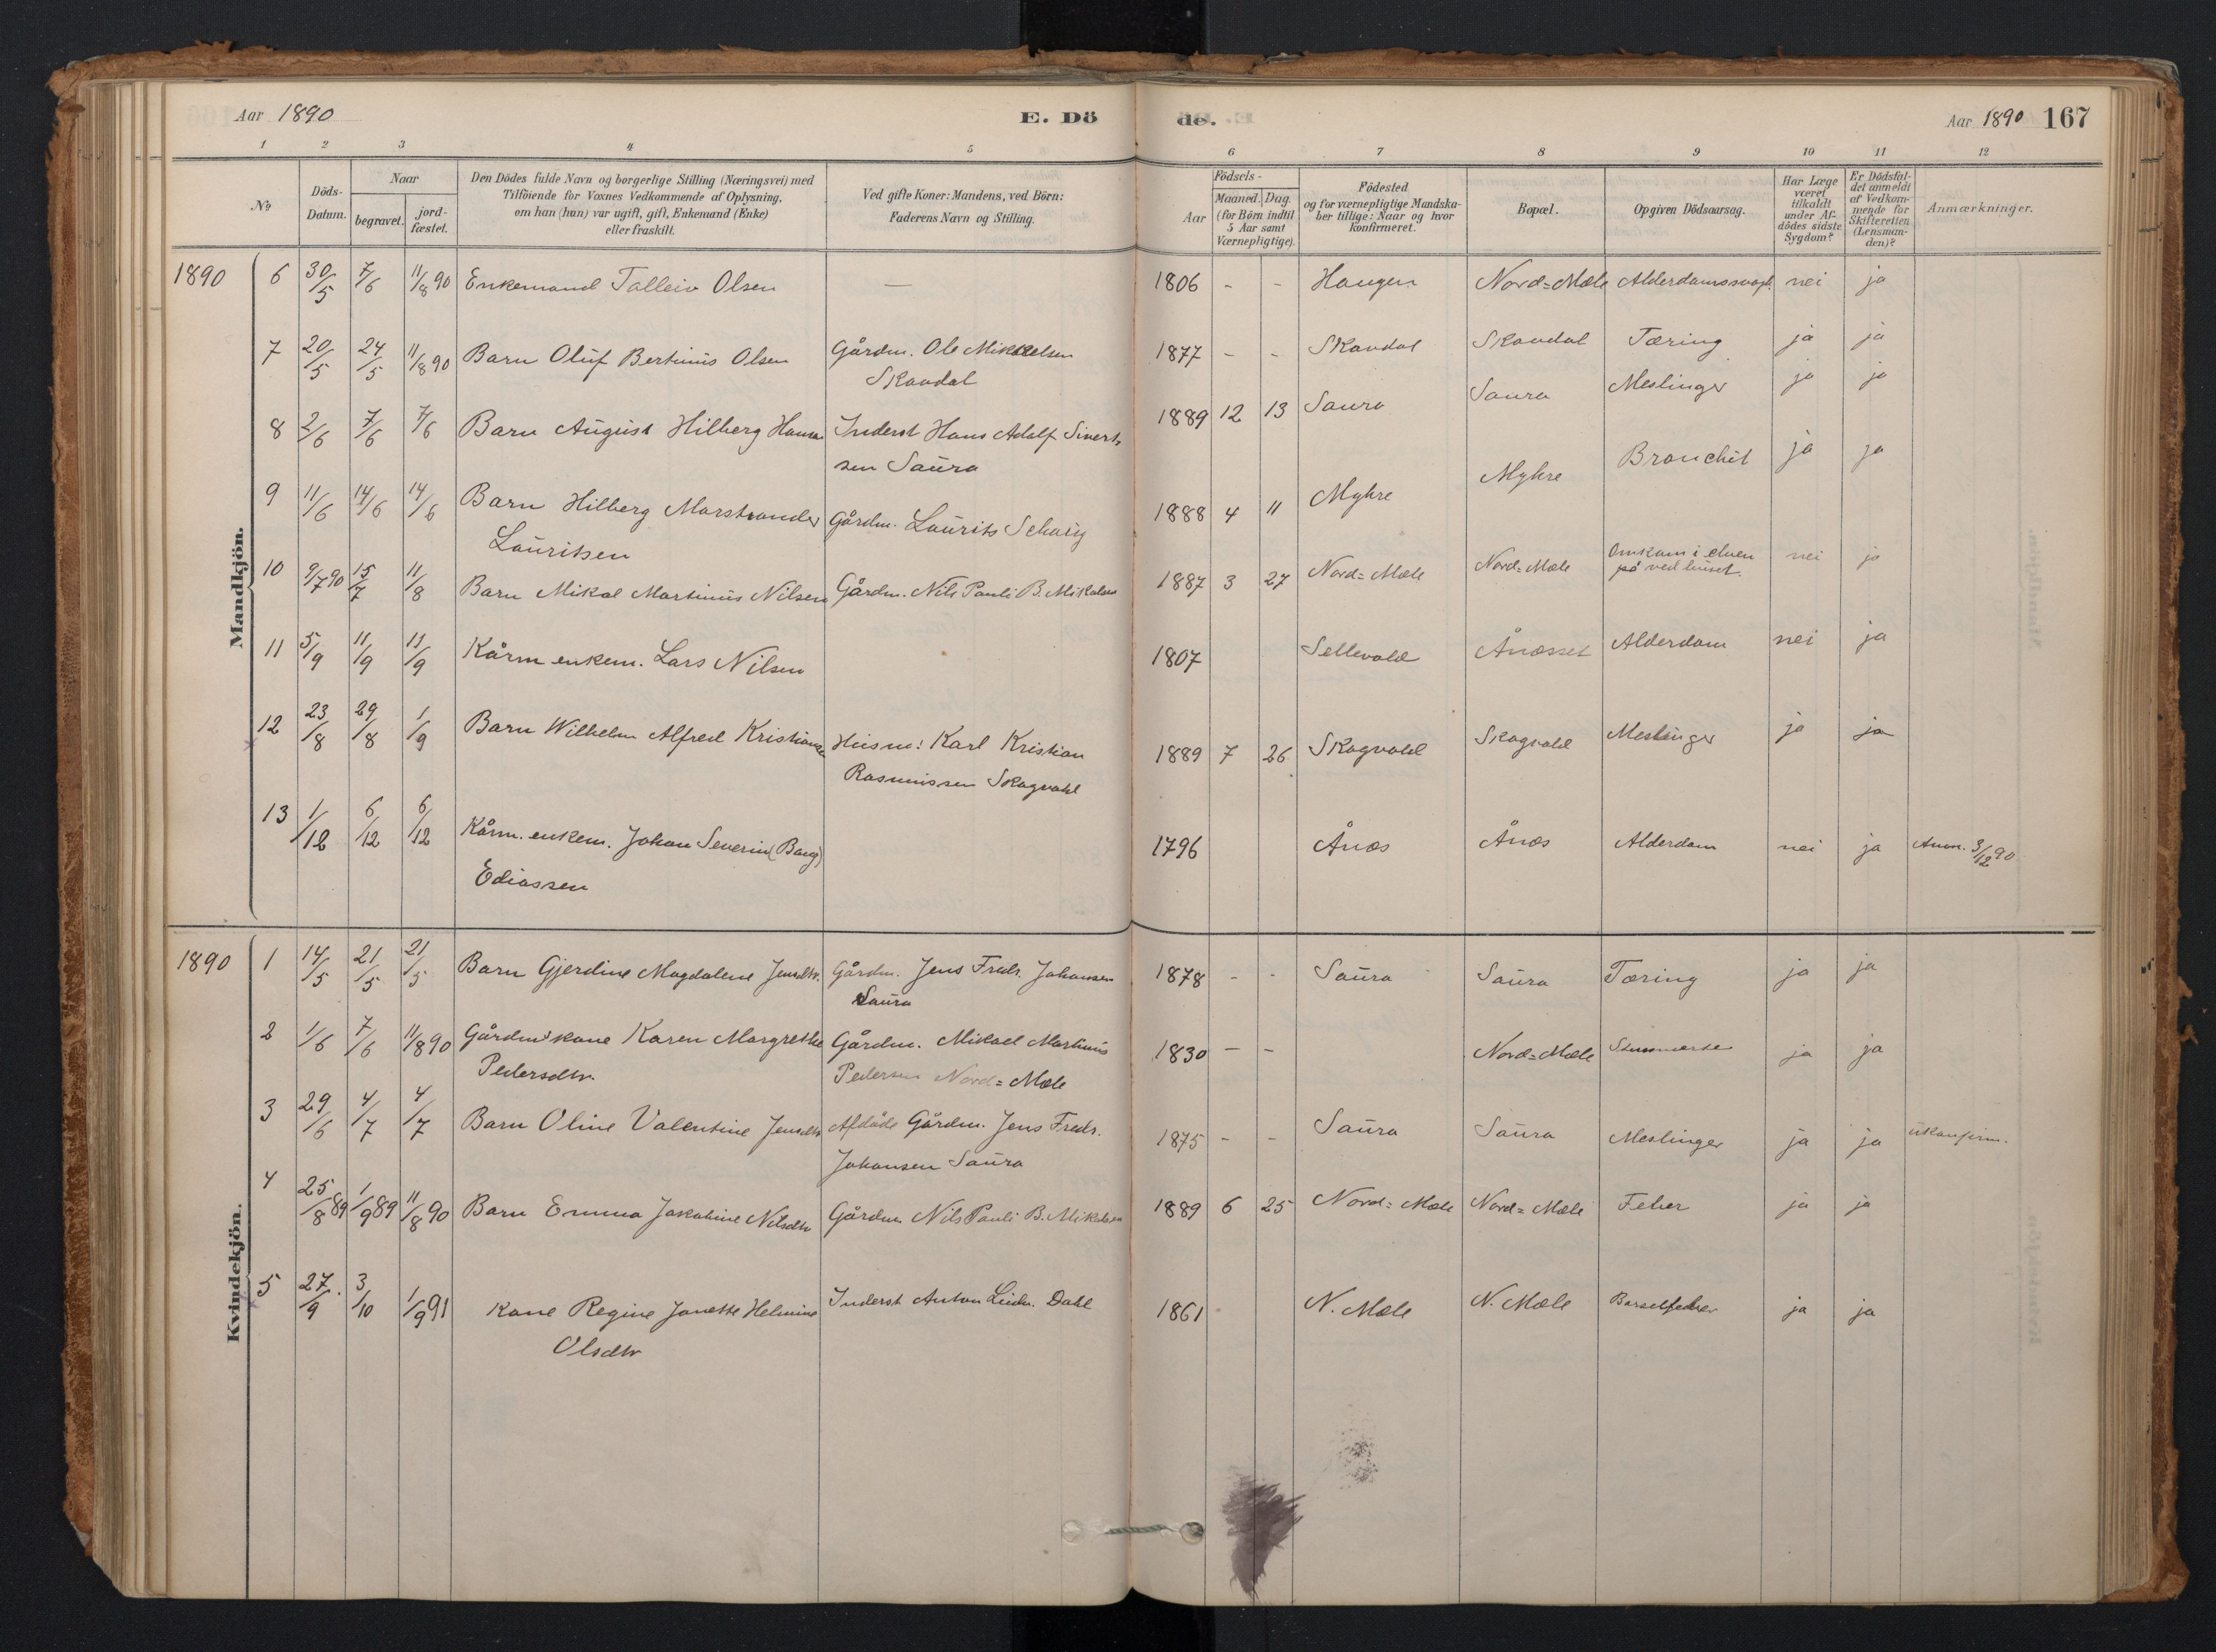 Aar 1890 E. Dö de. Aar 1890 167
1 2 3 4 5 6 7 8 9 10 11 12
№
Döds-
Datum.
Naar
begravet.
jord-
fæstet.
Den Dödes fulde Navn og borgerlige Stilling (Næringsvei) med
Tilföiende for Voxnes Vedkommende af Oplysning,
om han (hun) var ugift, gift, Enkemand (Enke)
eller fraskilt.
Ved gifte Koner: Mandens, ved Börn:
Faderens Navn og Stilling.
Födsels-
Aar
Maaned. Dag.
(for Börn indtil
5 Aar samt
Værnepligtige).
Födested
og for værnepligtige Mandska-
ber tillige: Naar og hvor
konfirmeret.
Bopæl.
Opgiven Dödsaarsag.
Har Læge
været
tilkaldt
under Af-
dödes sidste
Sygdom?
Er Dödsfal-
det anmeldt
af Vedkom-
mende for
Skifteretten
(Lensman-
den)?
Anmærkninger.
Mandkjön.
1890 6 30/5 7/6 11/8 90 Enkemand Talleiv Olsen — 1806 - - Haugen Nord=Mæle nei ja
7 20/5 24/5 11/8 90 Barn Oluf Bertinus Olsen Gårdm. Ole Mikkelsen 1877 - - Skandal Skandal Tæring ja ja
Skandal
8 2/6 7/6 7/6 Barn August Hilberg Hansen Inderst Hans Adolf Siverts 1889 12 13 Saura Saura Meslinger ja ja
sen Saura
9 11/6 14/6 14/6 Barn Hilberg Marstrander Gårdm. Laurits Schaug 1888 4 11 Myhre Myhre Bronchit ja ja
Lauritsen
10 9/7 90 15/7 11/8 Barn Mikal Martinus Nilsen Gårdm. Nils Pauli B. Mikalsen 1887 3 27 Nord=Mæle Nord=Mæle Omkom i elven nei ja
på ved huset.
11 5/9 11/9 11/9 Kårm enkem. Lars Nilsen 1807 Sellevold Ånæsset Alderdom nei ja
12 23/8 29/8 1/9 Barn Wilhelm Alfred Kristiansen Husm: Karl Kristian 1889 7 26 Skogvold Skogvold Meslinger ja ja
Rasmussen Skogvold
13 1/12 6/12 6/12 Kårm. enkem. Johan Severin (Bang) 1796 Ånæs Ånæs Alderdom nei ja Anm. 3/12 90
Ediassen
Kvindekjön.
1890 1 14/5 21/5 21/5 Barn Gjerdine Magdalene Jensdtr. Gårdm. Jens Fredr. Johansen 1878 - - Saura Saura Tæring ja ja
Saura
2 1/6 7/6 11/8 90 Gårdmskone Karen Margrethe Gårdm. Mikael Martinus 1830 - - Nord=Mæle ja ja
Pedersdtr. Pedersen Nord=Mæle
3 29/6 4/7 4/7 Barn Oline Valentine Jensdtr Afdøde Gårdm. Jens Fredr. 1875 - - Saura Saura Meslinger ja ja ukonfirm.
Johansen Saura
4 25/8 89 1/9 89 11/8 90 Barn Emma Jakobine Nilsdtr Gårdm Nils Pauli B. Mikalsen 1889 6 25 Nord=Mæle Nord=Mæle Feber ja ja
5 27/9. 3/10 1/9 91 Kone Regine Janette Helmine Inderst Anton Dahl 1861 N. Mæle N. Mæle Barselfeber ja ja
Olsdtr